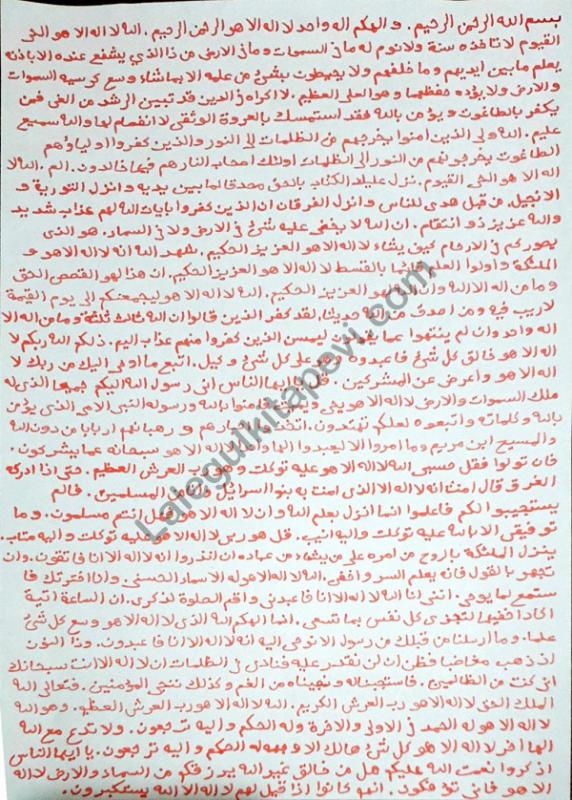 بسم الله الرحمن الرحيم . والهكم اله واحد لا اله الا هو الرحمن الرحيم . الله لا اله الا هو الحى
القيوم لا تأخذه سنة ولا نوم له ما فى السموات وما فى الارض من ذا الذي يشفع عنده الا باذنه
يعلم ما بين ايديهم وما خلفهم ولا يحيطون بشئ من علمه الا بما شاء وسع كرسيه السموات
والارض ولا يؤده حفظهما وهو العلى العظيم . لا اكراه فى الدين قد تبين الرشد من الغى فمن
يكفر بالطاغوت ويؤمن بالله فقد استمسك بالعروة الوثقى لا انفصام لها والله سميع
عليم . الله ولى الذين امنوا يخرجهم من الظلمات الى النور والذين كفروا اولياؤهم
الطاغوت يخرجونهم من النور الى الظلمات اولئك اصحاب النار هم فيها خالدون . الم . الله لا
اله الا هو الحى القيوم . نزل عليك الكتاب بالحق مصدقا لما بين يديه وانزل التورية و
الانجيل . من قبل هدى للناس وانزل الفرقان ان الذين كفروا بايات الله لهم عذاب شديد
والله عزيز ذو انتقام . ان الله لا يخفى عليه شئ فى الارض ولا فى السماء . هو الذى
يصوركم فى الارحام كيف يشاء لا اله الا هو العزيز الحكيم . شهد الله انه لا اله الا هو و
الملئكة واولوا العلم قائما بالقسط لا اله الا هو العزيز الحكيم . ان هذا لهو القصص الحق
وما من اله الا الله وان الله لهو العزيز الحكيم . الله لا اله الا هو ليجمعنكم الى يوم القيمة
لا ريب فيه ومن اصدق من الله حديثا . لقد كفر الذين قالوا ان الله ثالث ثلثة وما من اله الا
اله واحد وان لم ينتهوا عما يقولون ليمسن الذين كفروا منهم عذاب اليم . ذلكم الله ربكم لا
اله الا هو خالق كل شئ فاعبدوه وهو على كل شئ وكيل . اتبع ما اوحى اليك من ربك لا
اله الا هو واعرض عن المشركين . قل يا ايها الناس انى رسول الله اليكم جميعا الذى له
ملك السموات والارض لا اله الا هو يحيى ويميت فامنوا بالله ورسوله النبى الامى الذى يؤمن
بالله وكلماته واتبعوه لعلكم تهتدون . اتخذوا احبارهم ورهبانهم اربابا من دون الله
والمسيح ابن مريم وما امروا الا ليعبدوا الها واحدا لا اله الا هو سبحانه عما يشركون .
فان تولوا فقل حسبى الله لا اله الا هو عليه توكلت وهو رب العرش العظيم . حتى اذا ادركه
الغرق قال امنت انه لا اله الا الذى امنت به بنوا اسرائيل وانا من المسلمين . فالم
يستجيبوا لكم فاعلموا انما انزل بعلم الله وان لا اله الا هو فهل انتم مسلمون . وما
توفيقى الا بالله عليه توكلت واليه انيب . قل هو ربى لا اله الا هو عليه توكلت واليه متاب .
ينزل الملئكة بالروح من امره على من يشاء من عباده ان انذروا انه لا اله الا انا فاتقون . وان
تجهر بالقول فانه يعلم السر واخفى . الله لا اله الا هو له الاسماء الحسنى . وانا اخترتك فا
ستمع لما يوحى . اننى انا الله لا اله الا انا فاعبدنى واقم الصلوة لذكرى . ان الساعة اتية
اكاد اخفيها لتجزى كل نفس بما تسعى . انما الهكم الله الذى لا اله الا هو وسع كل شئ
علما . وما ارسلنا من قبلك من رسول الا نوحى اليه انه لا اله الا انا فاعبدون . وذا النون
اذ ذهب مغاضبا فظن ان لن نقدر عليه فنادى فى الظلمات ان لا اله الا انت سبحانك
انى كنت من الظالمين . فاستجبنا له ونجيناه من الغم وكذلك ننجى المؤمنين . فتعالى الله
الملك الحق لا اله الا هو رب العرش الكريم . الله لا اله الا هو رب العرش العظيم . وهو الله
لا اله الا هو له الحمد فى الاولى والاخرة وله الحكم واليه ترجعون . ولا تدع مع الله
الها اخر لا اله الا هو كل شئ هالك الا وجهه له الحكم واليه ترجعون . يا ايها الناس
اذكروا نعمت الله عليكم هل من خالق غير الله يرزقكم من السماء والارض لا اله
الا هو فانى تؤفكون . انهم كانوا اذا قيل لهم لا اله الا الله يستكبرون .
Lalegulkitapevi.com